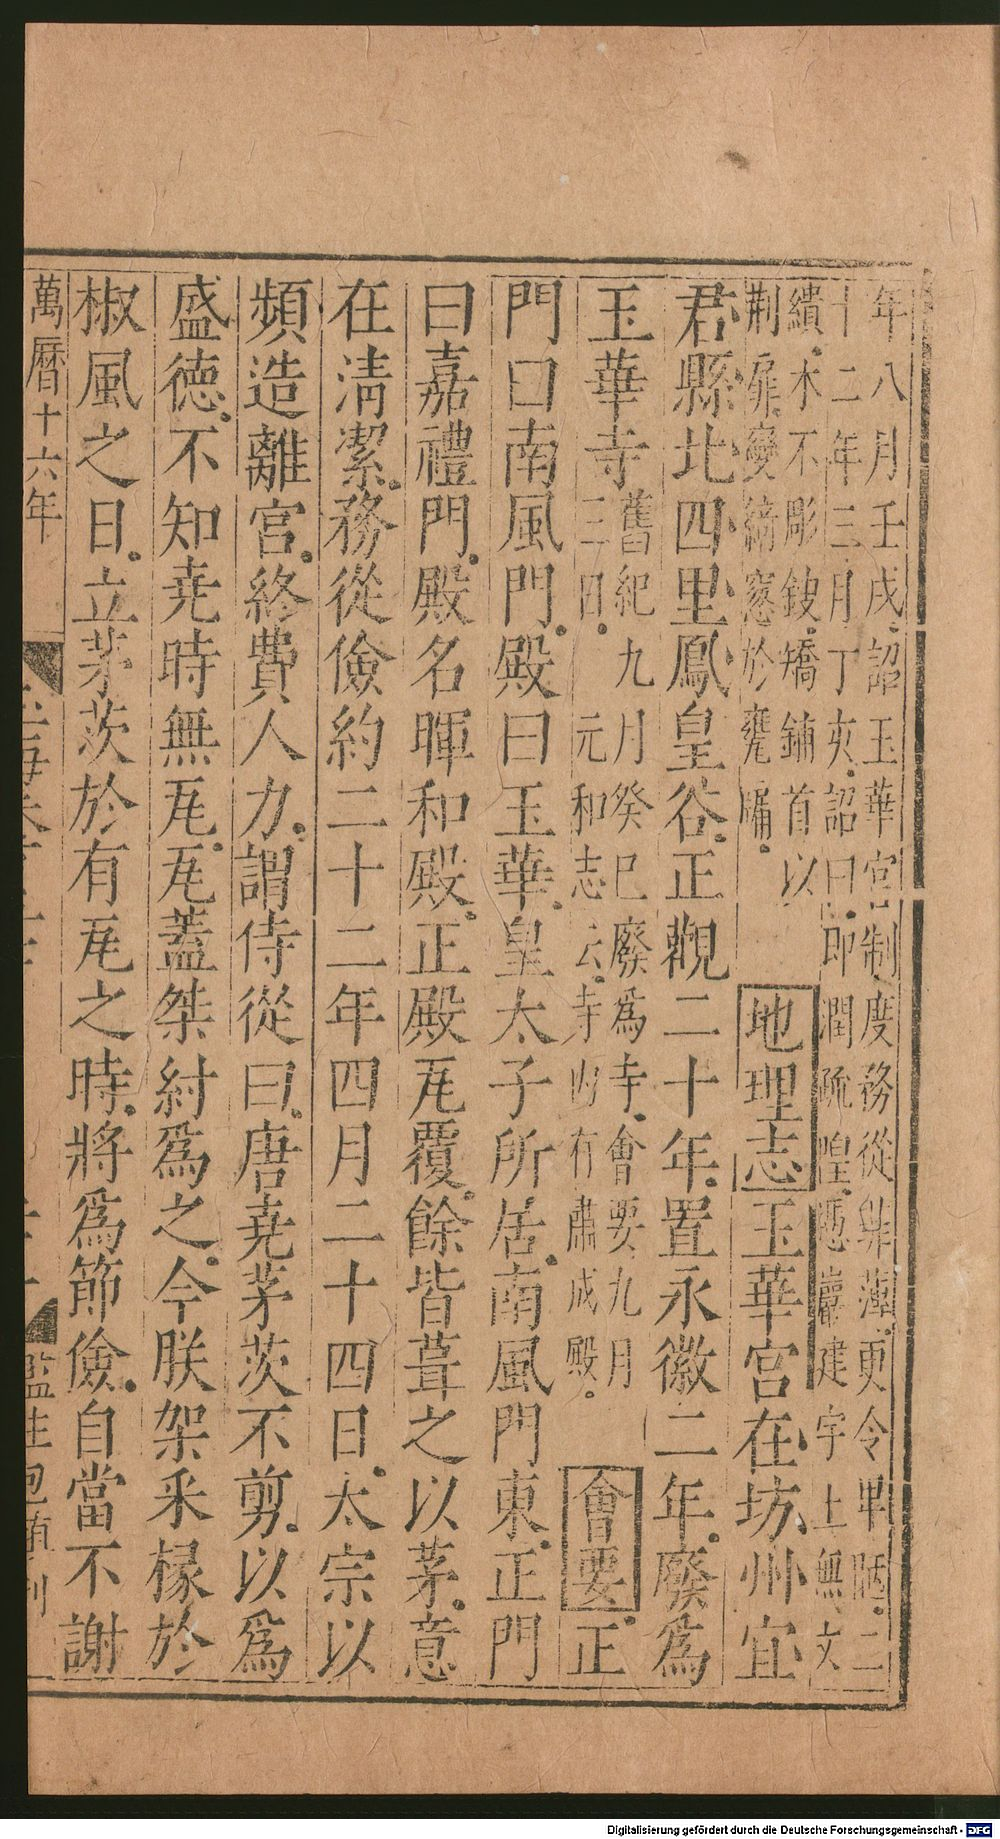 年八月壬戌詔玉華宮制度務從菲薄更令卑陋二
十二年三月丁亥詔曰即澗疏隍憑巖建宇上無文
繢木不彫鍥矯鋪首以
荆扉變綺窓於甕牖
地理志玉華宮在坊州宜
君縣北四里鳳皇谷正觀二十年置永徽二年廢爲
玉華寺
舊紀九月癸巳廢爲寺會要九月
三日元和志云寺内有肅成殿
會要正
門曰南風門殿曰玉華皇太子所居南風門東正門
曰嘉禮門殿名暉和殿正殿瓦覆餘皆葺之以茅意
在淸潔務從儉約二十二年四月二十四日太宗以
頻造離宮終費人力謂侍從曰唐堯茅茨不剪以爲
盛德不知堯時無瓦瓦蓋桀紂爲之今朕架采椽於
椒風之日立茅茨於有瓦之時將爲節儉自當不謝
萬曆十六年
監生
刊
Digitalisierung gefördert durch die Deutsche Forschungsgemeinschaft - DFG